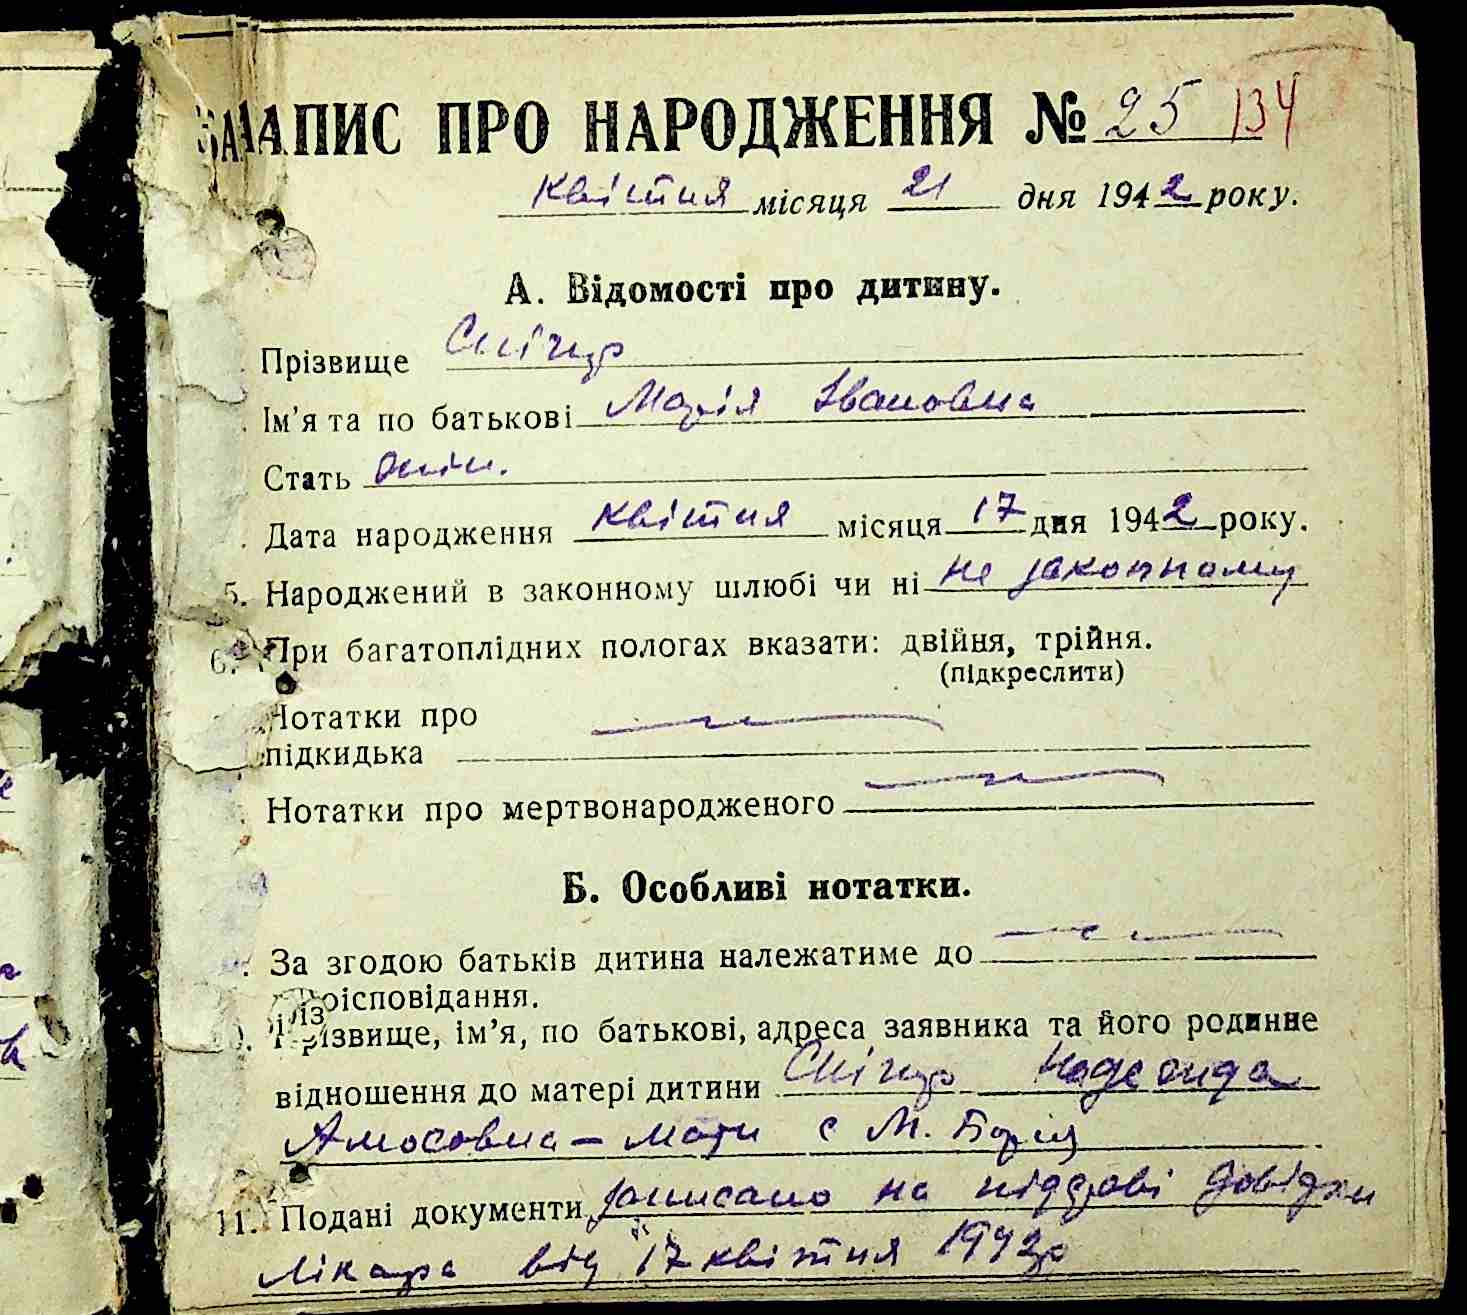 ЗАПИС ПРО НАРОДЖЕННЯ № 25 134
квітня місяця 21 дня 1942 року.
А. Відомості про дитину.
Прізвище Снігир
Ім'я та по батькові Марія Івановна
Стать жін.
Дата народження квітня місяця 17 дня 1942 року.
5. Народжений в законному шлюбі чи ні не законному
6. При багатоплідних пологах вказати: двійня, трійня.
(підкреслити)
Нотатки про
підкидька
Нотатки про мертвонародженого
Б. Особливі нотатки.
За згодою батьків дитина належатиме до
віроісповідання.
Прізвище, ім'я, по батькові, адреса заявника та його родинне
відношення до матері дитини Снігир Надежда
Амосовна – мати с М. Бориц
11. Подані документи записано на підставі довідки
Лікара від 17 квітня 1942 р